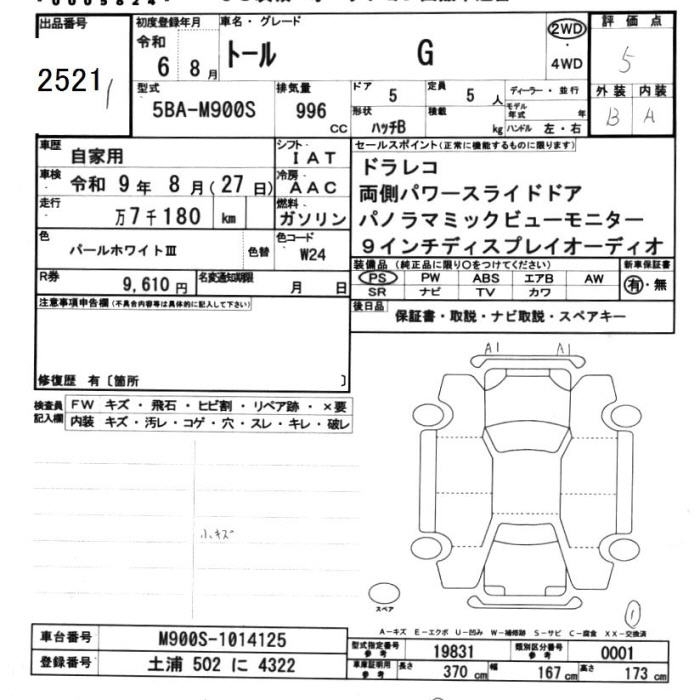 出品番号
2521
初度登録年月
令和
6 8月
車名・グレード
トール G
2WD
・
4WD
評価点
5
型式
5BA-M900S
排気量
996
CC
ドア
5
定員
5 人
形状
ハッチB
積載
kg
ディーラー・並行
モデル年式 年
ハンドル 左・右
外装 内装
B A
車歴
自家用
シフト
IAT
車検
令和 9年 8月(27日)
冷房
AAC
走行
万7千180 km
燃料
ガソリン
色
パールホワイトⅢ
色替
色コード
W24
R券
9,610円
名変通知期限
月 日
セールスポイント(正常に機能するものに限ります)
ドラレコ
両側パワースライドドア
パノラマミックビューモニター
9インチディスプレイオーディオ
装備品(純正品に限り○をつけてください)
PS PW ABS エアB AW
SR ナビ TV カワ
新車保証書
有・無
後日品
保証書・取説・ナビ取説・スペアキー
注意事項申告欄(不具合内容等は具体的に記入して下さい)
修復歴 有〔箇所 〕
検査員記入欄
FW キズ・飛石・ヒビ割・リペア跡・×要
内装 キズ・汚レ・コゲ・穴・スレ・キレ・破レ
小キズ
A1 A1
スペア
1
A-キズ E-エクボ U-凹み W-補修跡 S-サビ C-腐食 XX-交換済
車台番号
M900S-1014125
登録番号
土浦 502 に 4322
型式指定番号参考
19831
類別区分番号参考
0001
車庫証明用参考
長さ 370 cm 幅 167 cm 高さ 173 cm